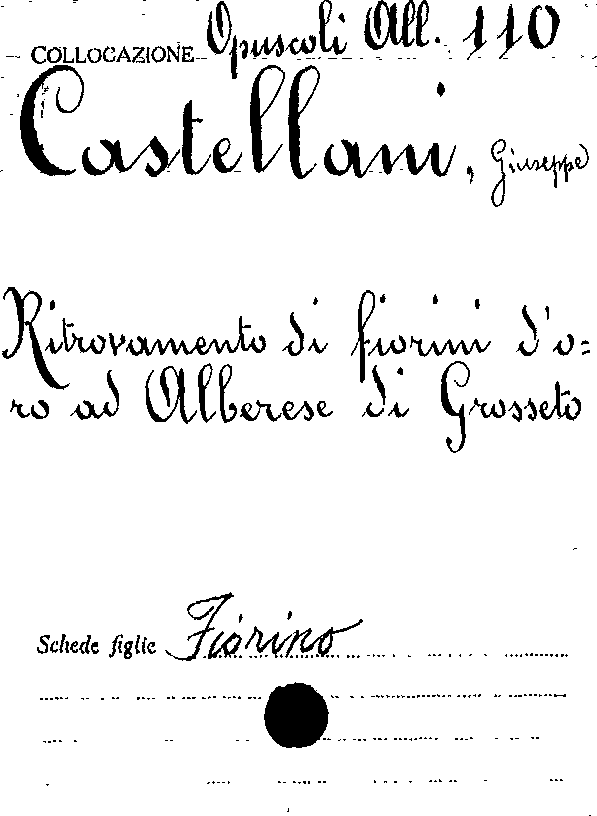 COLLOCAZIONE Opuscoli All. 110
Castellani, Giuseppe
Ritrovamento di fiorini d'o=
ro ad Alberese di Grosseto
Schede figlie Fiorino